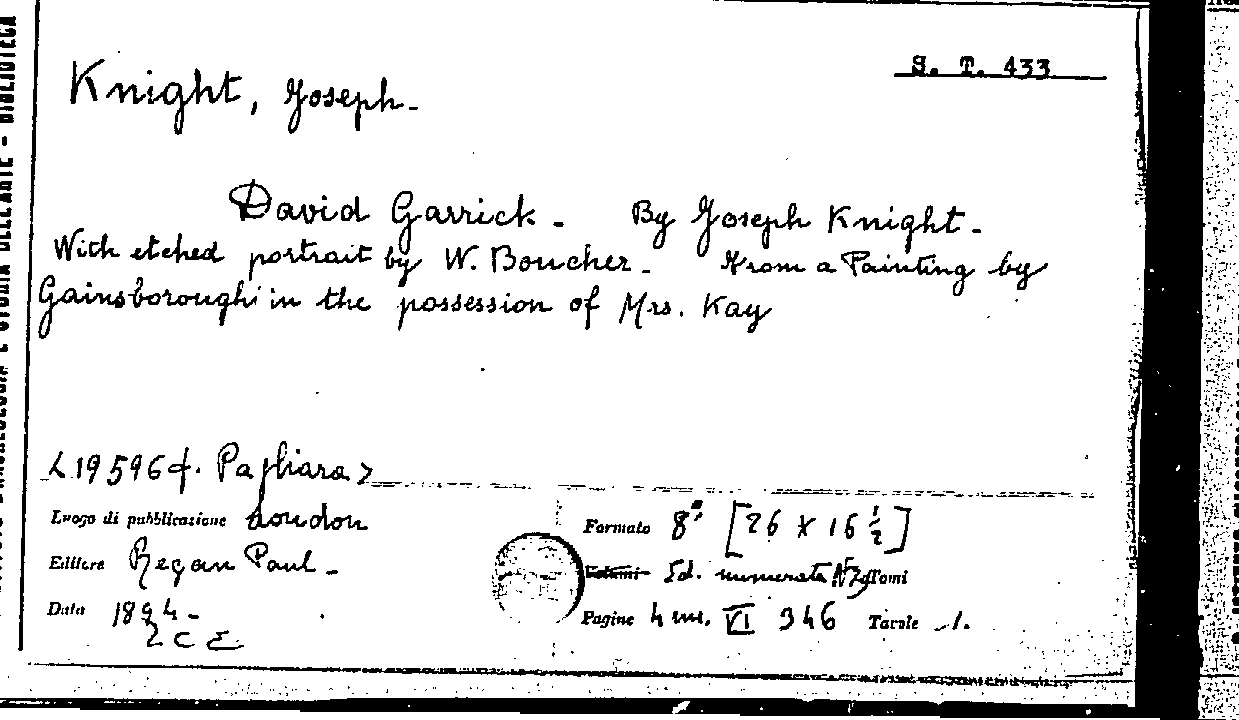 S. T. 433
Knight, Joseph.
David Garrick. By Joseph Knight.
With etched portrait by W. Boucher. From a Painting by
Gainsborough in the possession of Mrs. Kay
<19596 f. Pagliara>
Luogo di pubblicazione London
Formato 8° [26 x 16 ½]
Editore Regan Paul.
Volumi Ed. numerata Tomi
Data 1894.
Pagine 4 nn. VI 346 Tavole 1.